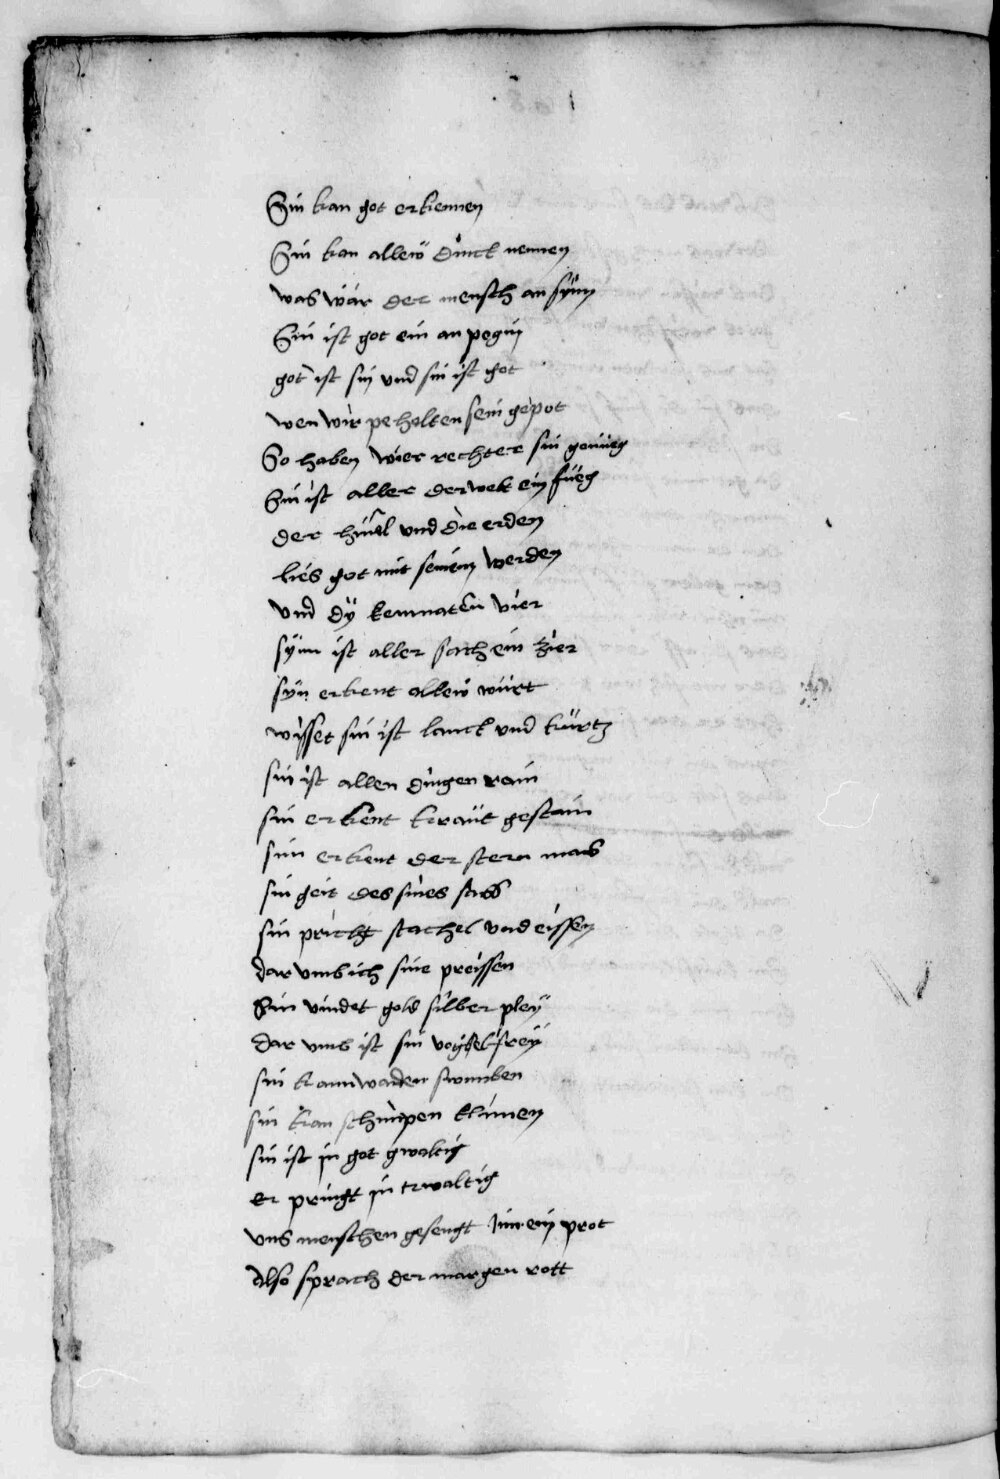 Sin kan got erkennen
Sin kan allew dinck nennen
was wär der mensch an synn
Sin ist got ein an pegin
got ist sin und sin ist got
wen wir pehalten sein gepot
So haben wier rechter sin genueg
Sin ist aller der welt ein fueg
der himel und die erden
lies got mit seinem werden
und dy kemnaten vier
synn ist aller sach ein zier
syn erkent allew würt
wisset sin ist lanck und kürtz
sin ist allen dingen rain
sin erkent kraüt gestain
sinn erkent der stern mas
sin geit des sines sas
sin pricht stachel und eissen
dar umb ich sine preissen
Sin vindet gold silber pley
dar umb ist sin vogel frey
sin kann waden swimben
sin kan schimpen klimen
sin ist in got gwaltig
er pringt in trivaltig
uns menschen gesengt in ein prot
Also sprach der margen rott